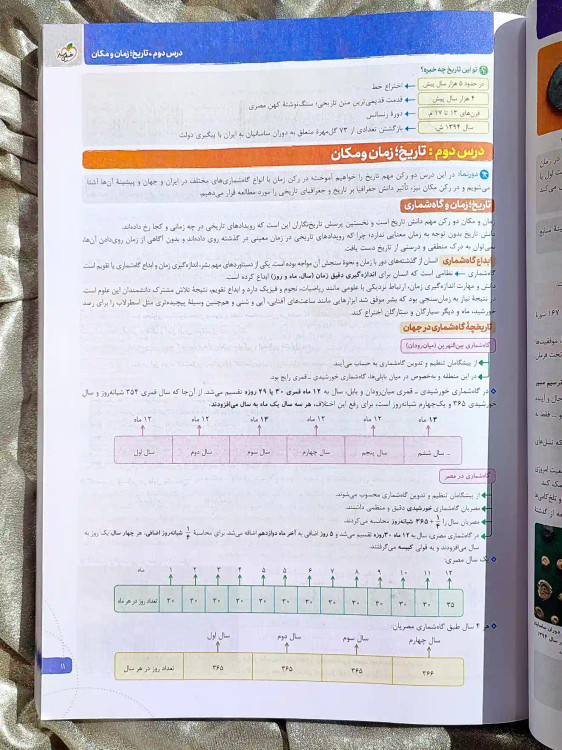 درس دوم • تاریخ؛ زمان و مکان
تو این تاریخ چه خبره؟
در حدود ۵ هزار سال پیش
اختراع خط
۴ هزار سال پیش
قدمت قدیمی‌ترین متن تاریخی؛ سنگ‌نوشتهٔ کهن مصری
قرن‌های ۱۳ تا ۱۷ م.
دورهٔ رنسانس
سال ۱۳۹۴ ش.
بازگشتن تعدادی از ۷۳ گل‌مهرهٔ متعلق به دوران ساسانیان به ایران با پیگیری دولت
درس دوم: تاریخ؛ زمان و مکان
دورنما: در این درس دو رکن مهم تاریخ را خواهیم آموخت؛ در رکن زمان با انواع گاه‌شماری‌های مختلف در ایران و جهان و پیشینهٔ آن‌ها آشنا
می‌شویم و در رکن مکان نیز، تأثیر دانش جغرافیا بر تاریخ و جغرافیای تاریخی را مورد مطالعه قرار می‌دهیم.
تاریخ؛ زمان و گاه‌شماری
زمان و مکان دو رکن مهم دانش تاریخ است و نخستین پرسش تاریخ‌نگاران این است که رویدادهای تاریخی در چه زمانی و کجا رخ داده‌اند.
دانش تاریخ بدون توجه به زمان معنایی ندارد؛ چرا که رویدادهای تاریخی در زمان معینی در گذشته روی داده‌اند و بدون آگاهی از زمان روی‌دادن آن‌ها،
نمی‌توان به درک منطقی و درستی از تاریخ دست یافت.
ابداع گاه‌شماری انسان از گذشته‌های دور با زمان و نحوهٔ سنجش آن مواجه بوده است. یکی از دستاوردهای مهم بشر، اندازه‌گیری زمان و ابداع گاه‌شماری یا تقویم است.
گاه‌شماری ← نظامی است که انسان برای اندازه‌گیری دقیق زمان (سال، ماه و روز) ابداع کرده است.
دانش و مهارت اندازه‌گیری زمان، ارتباط نزدیکی با علومی مانند ریاضیات، نجوم و فیزیک دارد و ابداع تقویم، نتیجهٔ تلاش مشترک دانشمندان این علوم است.
در نتیجهٔ نیاز به زمان‌سنجی بود که بشر موفق شد ابزارهایی مانند ساعت‌های آفتابی، آبی و شنی و هم‌چنین وسیلهٔ پیچیده‌تری مثل اسطرلاب را برای رصد
خورشید، ماه و دیگر سیارگان و ستارگان اختراع کند.
تاریخچهٔ گاه‌شماری در جهان
گاه‌شماری بین‌النهرین (میان‌رودان)
از پیشگامان تنظیم و تدوین گاه‌شماری به حساب می‌آیند.
در این منطقه و به‌خصوص در میان بابلی‌ها، گاه‌شماری خورشیدی ـ قمری رایج بود.
در گاه‌شماری خورشیدی ـ قمری میان‌رودان و بابل، سال به ۱۲ ماه قمری ۳۰ یا ۲۹ روزه تقسیم می‌شد. از آن‌جا که سال قمری ۳۵۴ شبانه‌روز و سال
خورشیدی ۳۶۵ و یک‌چهارم شبانه‌روز است، برای رفع این اختلاف، هر سه سال یک ماه به سال می‌افزودند.
۱۳ ماه ۱۲ ماه ۱۲ ماه ۱۳ ماه ۱۲ ماه ۱۲ ماه
سال ششم سال پنجم سال چهارم سال سوم سال دوم سال اول
گاه‌شماری در مصر
از پیشگامان تنظیم و تدوین گاه‌شماری محسوب می‌شوند.
مصریان گاه‌شماری خورشیدی دقیق و منظمی داشتند.
مصریان سال را ۱/۴ + ۳۶۵ شبانه‌روز محاسبه می‌کردند.
در گاه‌شماری مصری، سال به ۱۲ ماه ۳۰روزه تقسیم می‌شد و ۵ روز اضافی به آخر ماه دوازدهم اضافه می‌شد. برای محاسبهٔ ۱/۴ شبانه‌روز اضافی، هر چهار سال یک روز به
سال می‌افزودند و به قولی کبیسه می‌گرفتند.
یک سال مصری:
۱۲ ۱۱ ۱۰ ۹ ۸ ۷ ۶ ۵ ۵ ۴ ۳ ۲ ۱ ماه
۳۵ ۳۰ ۳۰ ۳۰ ۳۰ ۳۰ ۳۰ ۳۰ ۳۰ ۳۰ ۳۰ ۳۰ ۳۰ تعداد روز در هر ماه
هر ۴ سال طبق گاه‌شماری مصریان:
سال چهارم سال سوم سال دوم سال اول
۳۶۶ ۳۶۵ ۳۶۵ ۳۶۵ تعداد روز در هر سال
۱۱